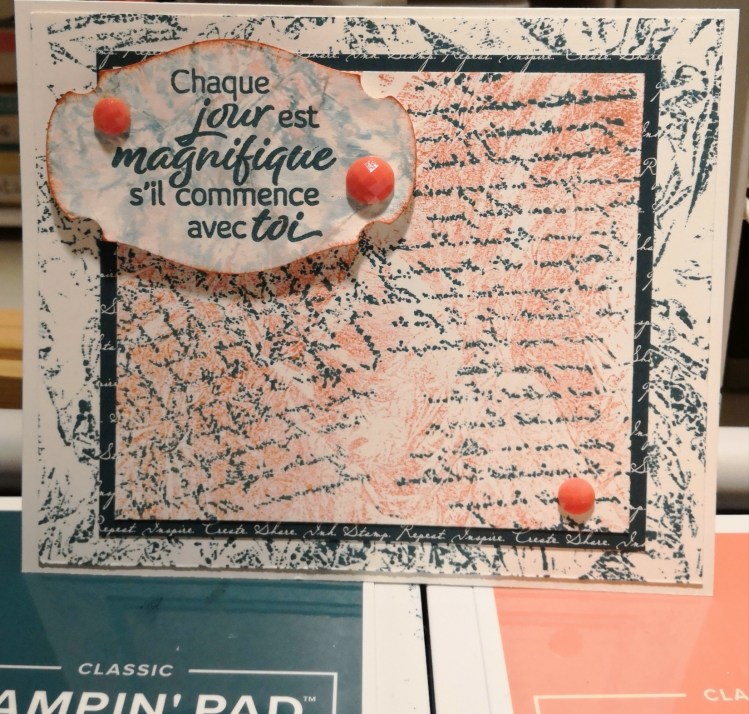 Chaque
jour est
magnifique
s'il commence
avec toi
Repeat Inspire Create Share Ink Stamp Repeat Inspire Create Share
CLASSIC
AMPIN' PAD™
CLA